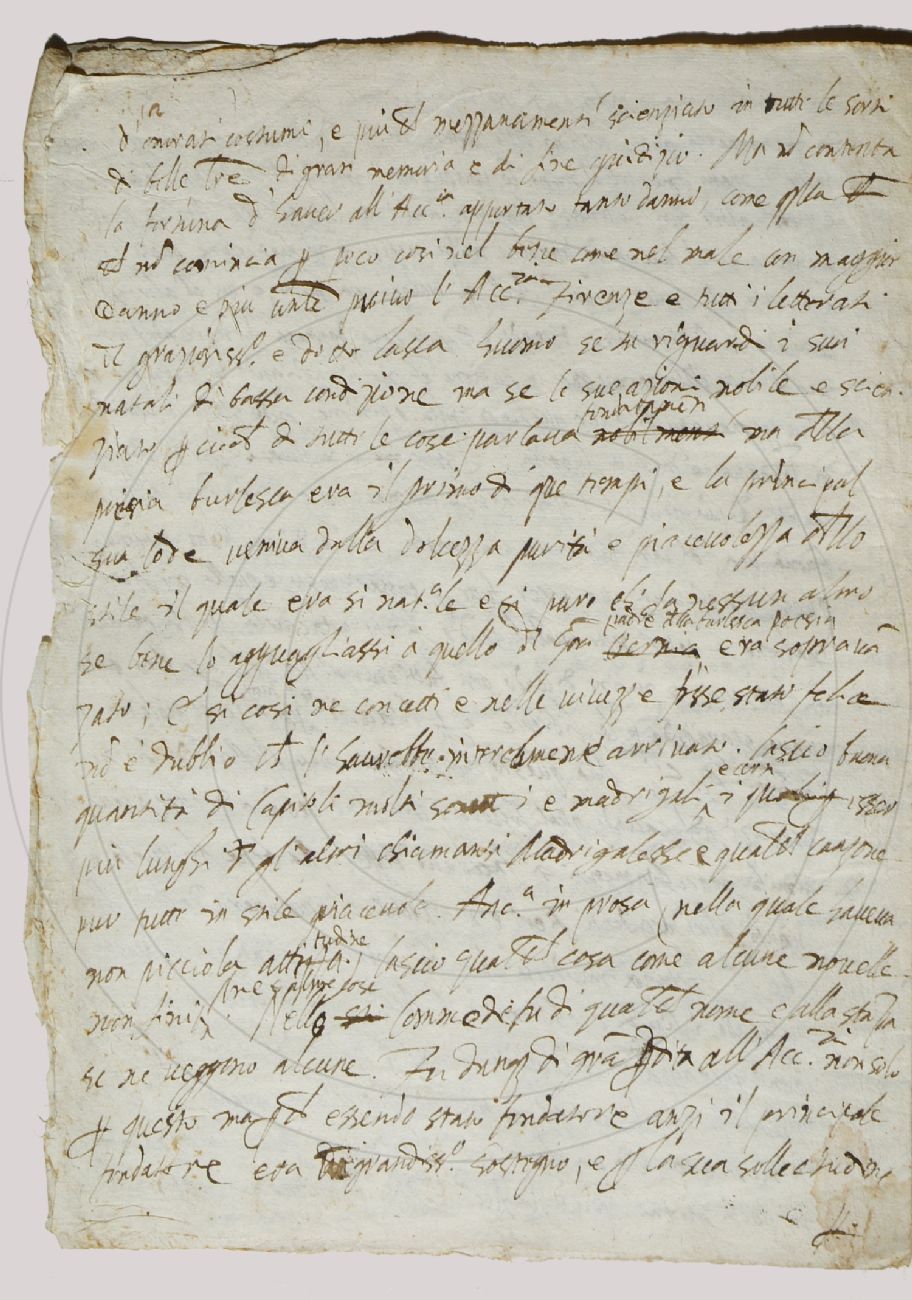 d'onorati costumi, e più che mezzanamente scienziato in tutte le sorti
di belle lre di gran memoria e di fine giudizio. Ma nõ contenta
la fortuna d'haver all'Accia. apportato tanto danno, come qlla che
che nõ comincia p poco così nel bene come nel male con maggior
danno e più privò l'Acc. Firenze e tutti i letterati
Il graziosissº. e dotto Lasca huomo se tu riguardi i suoi
natali di bassa condizione ma se le sue azioni nobile e scien-
ziato p ciò che di tutte le cose parlava fondatamente nobilmente ma della
poesia burlesca era il primo di que tempi, e la principal
sua lode veniva dalla dolcezza purità e piacevolezza dello
stile il quale era sì natªle e sì puro che da nessun altro
se bene lo agguagliassi à quello del padre della burlesca poesia Bernia era sopravã
zato; E si così ne concetti e nelle vivezze fosse stato felice
nõ è dubbio che l'havrebbe interamente arrivato. Lasciò buona
quantità di Capitoli molti sonetti e madrigali e certi i quali p esser
più lunghi che gl'altri chiamansi Madrigalesse e qualche canzone
pur tutte in stile piacevole. Ancª. in prosa, nella quale haveva
non picciola attitudine, lasciò qualche cosa come alcune novelle
non finite e altre cose. Nelle sue Commedie fu di qualche nome e alla stãpa
se ne veggono alcune. Fu dunqz di grã pdita all'Acc. non solo
p questo ma pche essendo stato fondatore anzi il principale
fondatore era di grandissº. sostegno, e p la sua sollecitudine